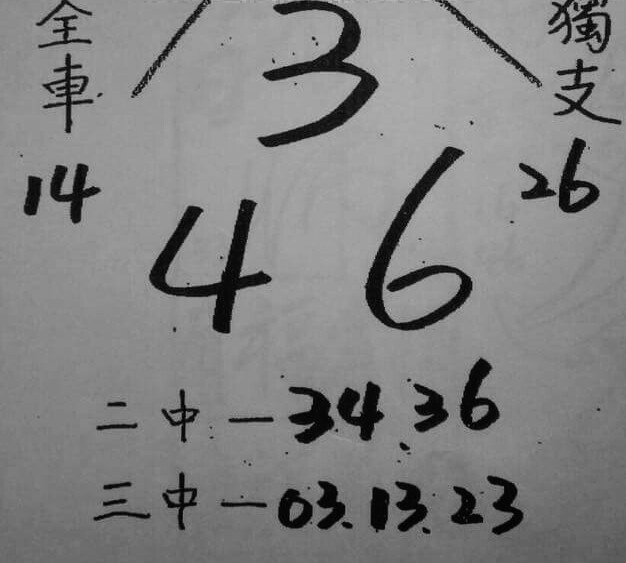 全車
3
獨支
14
4 6
26
二中一34.36
三中一03.13.23